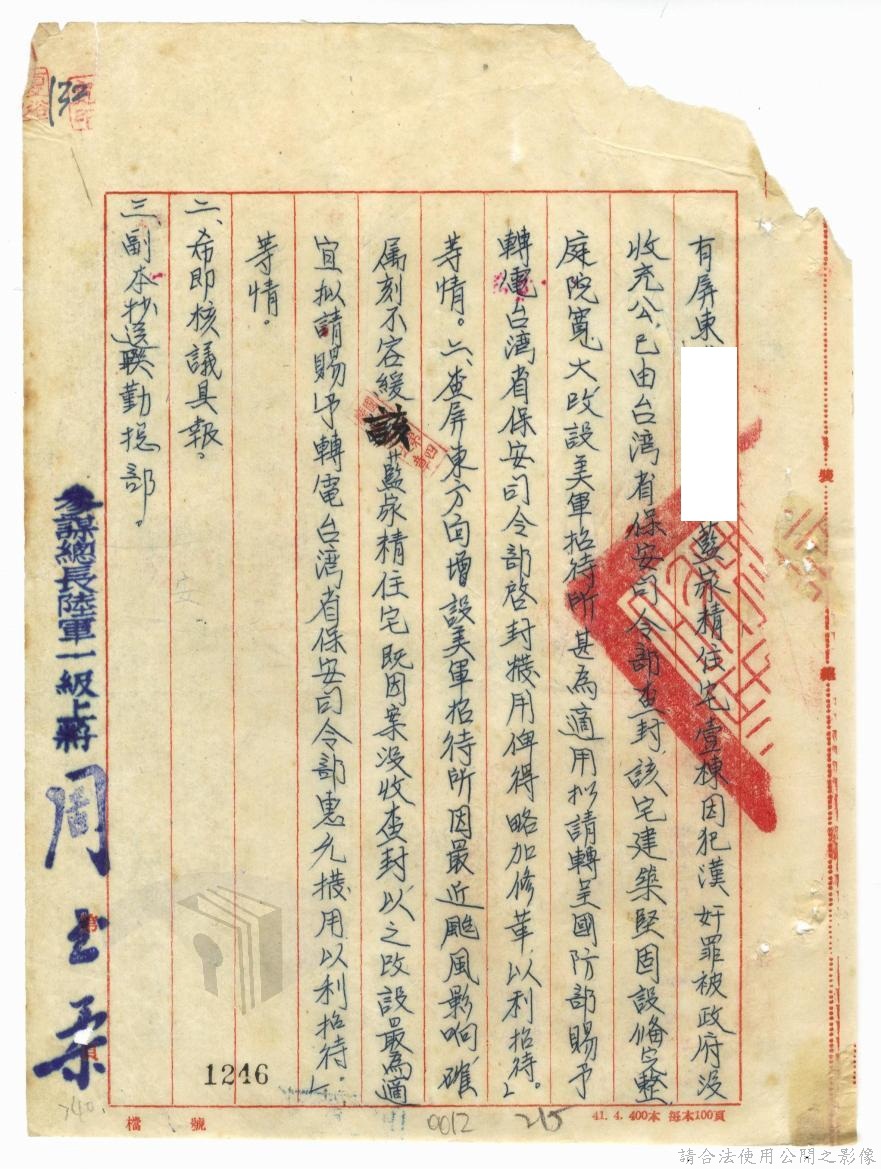 有屏東
藍家精住宅壹棟因犯漢奸罪被政府沒
收充公,已由台湾省保安司令部查封,該宅建築堅固設備完整
庭院寬大改設美軍招待所甚為適用拟請轉呈國防部賜予
轉電台湾省保安司令部啓封撥用俾得略加修葺,以利招待」
等情。二、查屏東方面增設美軍招待所因最近颱風影响確
屬刻不容緩該藍家精住宅既因案沒收查封以之改設最為適
宜拟請賜予轉電台湾省保安司令部惠允撥用,以利招待。」
等情。
二、希即核議具報。
三、副本抄送联勤總部。
參謀總長陸軍一級上將
周至柔
132
裝
線
第
頁
1246
檔 號
0012
215
41. 4. 400本 每本100頁
740.
請合法使用公開之影像